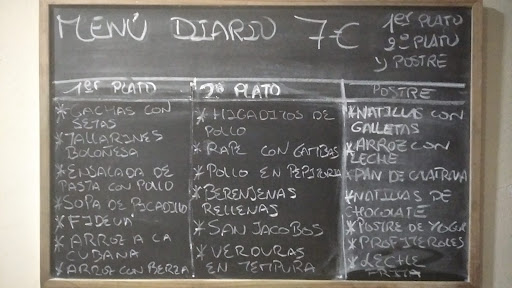 MENÚ DIARIO 7€
1er PLATO
2º PLATO
y POSTRE
1er PLATO
* GACHAS CON
SETAS
* TALLARINES
BOLOÑESA
* ENSALADA DE
PASTA CON POLLO
* SOPA DE PICADILLO
* FIDEUÁ
* ARROZ A LA
CUBANA
* ARROZ CON BERZA
2º PLATO
* HIGADITOS DE
POLLO
* RAPE CON GAMBAS
* POLLO EN PEPITORIA
* BERENJENAS
RELLENAS
* SAN JACOBOS
* VERDURAS
EN TEMPURA
POSTRE
* NATILLAS CON
GALLETAS
* ARROZ CON
LECHE
* PAN DE CALATRAVA
* NATILLAS DE
CHOCOLATE
* POSTRE DE YOGU
* PROFITEROLES
* LECHE
FRITA